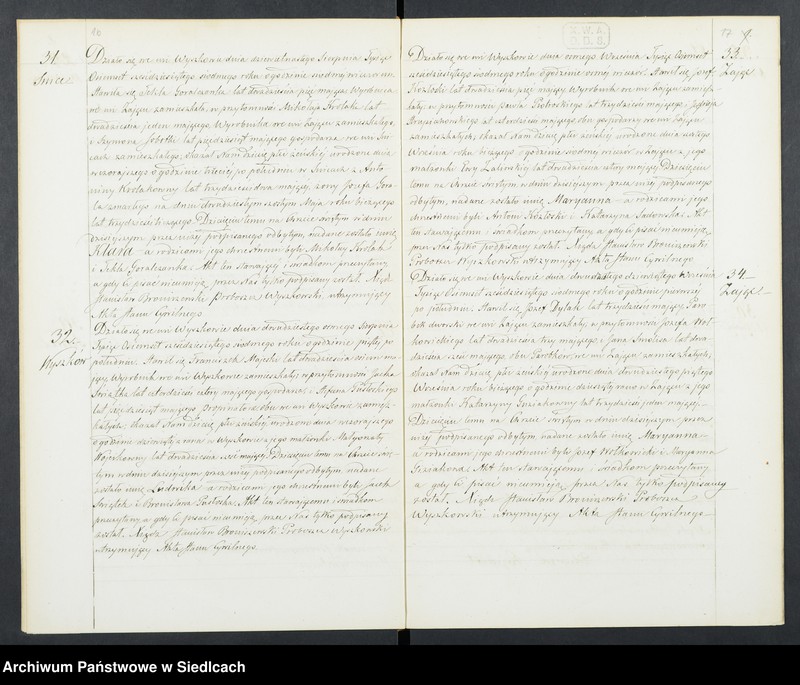 10
31
Snice
Działo się we wsi Wyszkowie dnia dwunastego Sierpnia Tysiąc
Ośmset sześćdziesiątego siódmego roku o godzinie
Stawiła się Tekla Goralczanka lat dwadzieścia pięć mająca Wyrobnica
we wsi Zającu zamieszkała, w przytomności Mikołaja Krolaka lat
dwadzieścia jeden mającego Wyrobnika we wsi Zającu zamieszkałego,
i Szymona Sobotki lat pięćdziesiąt mającego gospodarza we wsi Śni-
cach zamieszkałego, okazał Nam dziecię płci żeńskiej urodzone dnia
wczorajszego o godzinie trzeciej po południu w Śnicach z Anto-
niny Krolakowny lat trzydzieści dwa mającej, żony Józefa Gora-
la zmarłego na dniu dwudziestym szóstym Maja roku bieżącego
lat trzydzieści liczącego. Dziecięciu temu na Chrzcie świętym w dniu
dzisiejszym przez niżej podpisanego odbytym, nadane zostało imię
Klara a rodzicami jego chrzestnemi byli Mikołaj Krolak
i Tekla Goralczanka. Akt ten stawającej i świadkom przeczytany
a gdy ci pisać nieumieją, przez Nas tylko podpisany został. Xiądz
Stanisław Broniszewski Proboszcz Wyszkowski, utrzymujący
Akta Stanu Cywilnego
32
Wyszków
Działo się we wsi Wyszkowie dnia dwudziestego ósmego Sierpnia
Tysiąc Ośmset sześćdziesiątego siódmego roku o godzinie piątej po
południu. Stawił się Franciszek lat dwadzieścia siedem ma-
jący Wyrobnik we wsi Wyszkowie zamieszkały, w przytomności Jacka
lat czterdzieści mającego gospodarza, i
lat sześćdziesiąt mającego we wsi Wyszkowie zamiesz-
kałych, okazał Nam dziecię płci żeńskiej urodzone dnia wczorajszego
o godzinie dziewiątej z rana w Wyszkowie z jego małżonki Małgorzaty
Wojewkowny lat dwadzieścia sześć mającej. Dziecięciu temu na Chrzcie świę-
tym w dniu dzisiejszym przez niżej podpisanego odbytym nadane
zostało imię Ludwika a rodzicami jego chrzestnemi byli Jacek
i Bronisława. Akt ten stawającemu i świadkom
przeczytany a gdy ci pisać nieumieją, przez Nas tylko podpisany
został. Xiądz Stanisław Broniszewski Proboszcz Wyszkowski
utrzymujący Akta Stanu Cywilnego.
33
Zając
Działo się we wsi Wyszkowie dnia ósmego Września Tysiąc Ośmset
sześćdziesiątego siódmego roku o godzinie ósmej wieczór. Stawił się Józef
Kozłoski lat dwadzieścia pięć mający Wyrobnik we wsi Zającu zamiesz-
kały, w przytomności Pawła lat trzydzieści mającego, i
lat czterdzieści mającego obu gospodarzy we wsi Zającu
zamieszkałych, okazał Nam dziecię płci żeńskiej urodzone dnia
Września roku bieżącego o godzinie siódmej wieczór w Zającu z jego
małżonki Ewy Zaleskiej lat dwadzieścia cztery mającej. Dziecięciu
temu na Chrzcie świętym, w dniu dzisiejszym przez niżej podpisanego
odbytym, nadane zostało imię Maryanna a rodzicami jego
chrzestnemi byli Antoni Kozłoski i Katarzyna Sadowska. Akt
ten stawającemu i świadkom przeczytany, a gdy ci pisać nieumieją
przez Nas tylko podpisany został. Xiądz Stanisław Broniszewski
Proboszcz Wyszkowski utrzymujący Akta Stanu Cywilnego
34
Zając
Działo się we wsi Wyszkowie dnia dwudziestego dziewiątego Września
Tysiąc Ośmset sześćdziesiątego siódmego roku o godzinie pierwszej
po południu. Stawił się Józef Dylak lat trzydzieści mający Paro-
bek dworski we wsi Zającu zamieszkały, w przytomności Józefa Wol-
kowickiego lat dwadzieścia trzy mającego i Jana lat dwa-
dzieścia mającego obu Parobków, we wsi Zającu zamieszkałych,
okazał Nam dziecię płci żeńskiej urodzone dnia dwudziestego piątego
Września roku bieżącego o godzinie dziesiątej rano w Zającu z jego
małżonki Katarzyny lat trzydzieści jeden mającej.
Dziecięciu temu na Chrzcie świętym w dniu dzisiejszym przez
niżej podpisanego odbytym nadane zostało imię Maryanna
a rodzicami jego chrzestnemi byli Józef Wolkowicki i Maryanna
Akt ten stawającemu i świadkom przeczytany
a gdy ci pisać nieumieją przez Nas tylko podpisany
został. Xiądz Stanisław Broniszewski Proboszcz
Wyszkowski utrzymujący Akta Stanu Cywilnego
Archiwum Państwowe w Siedlcach